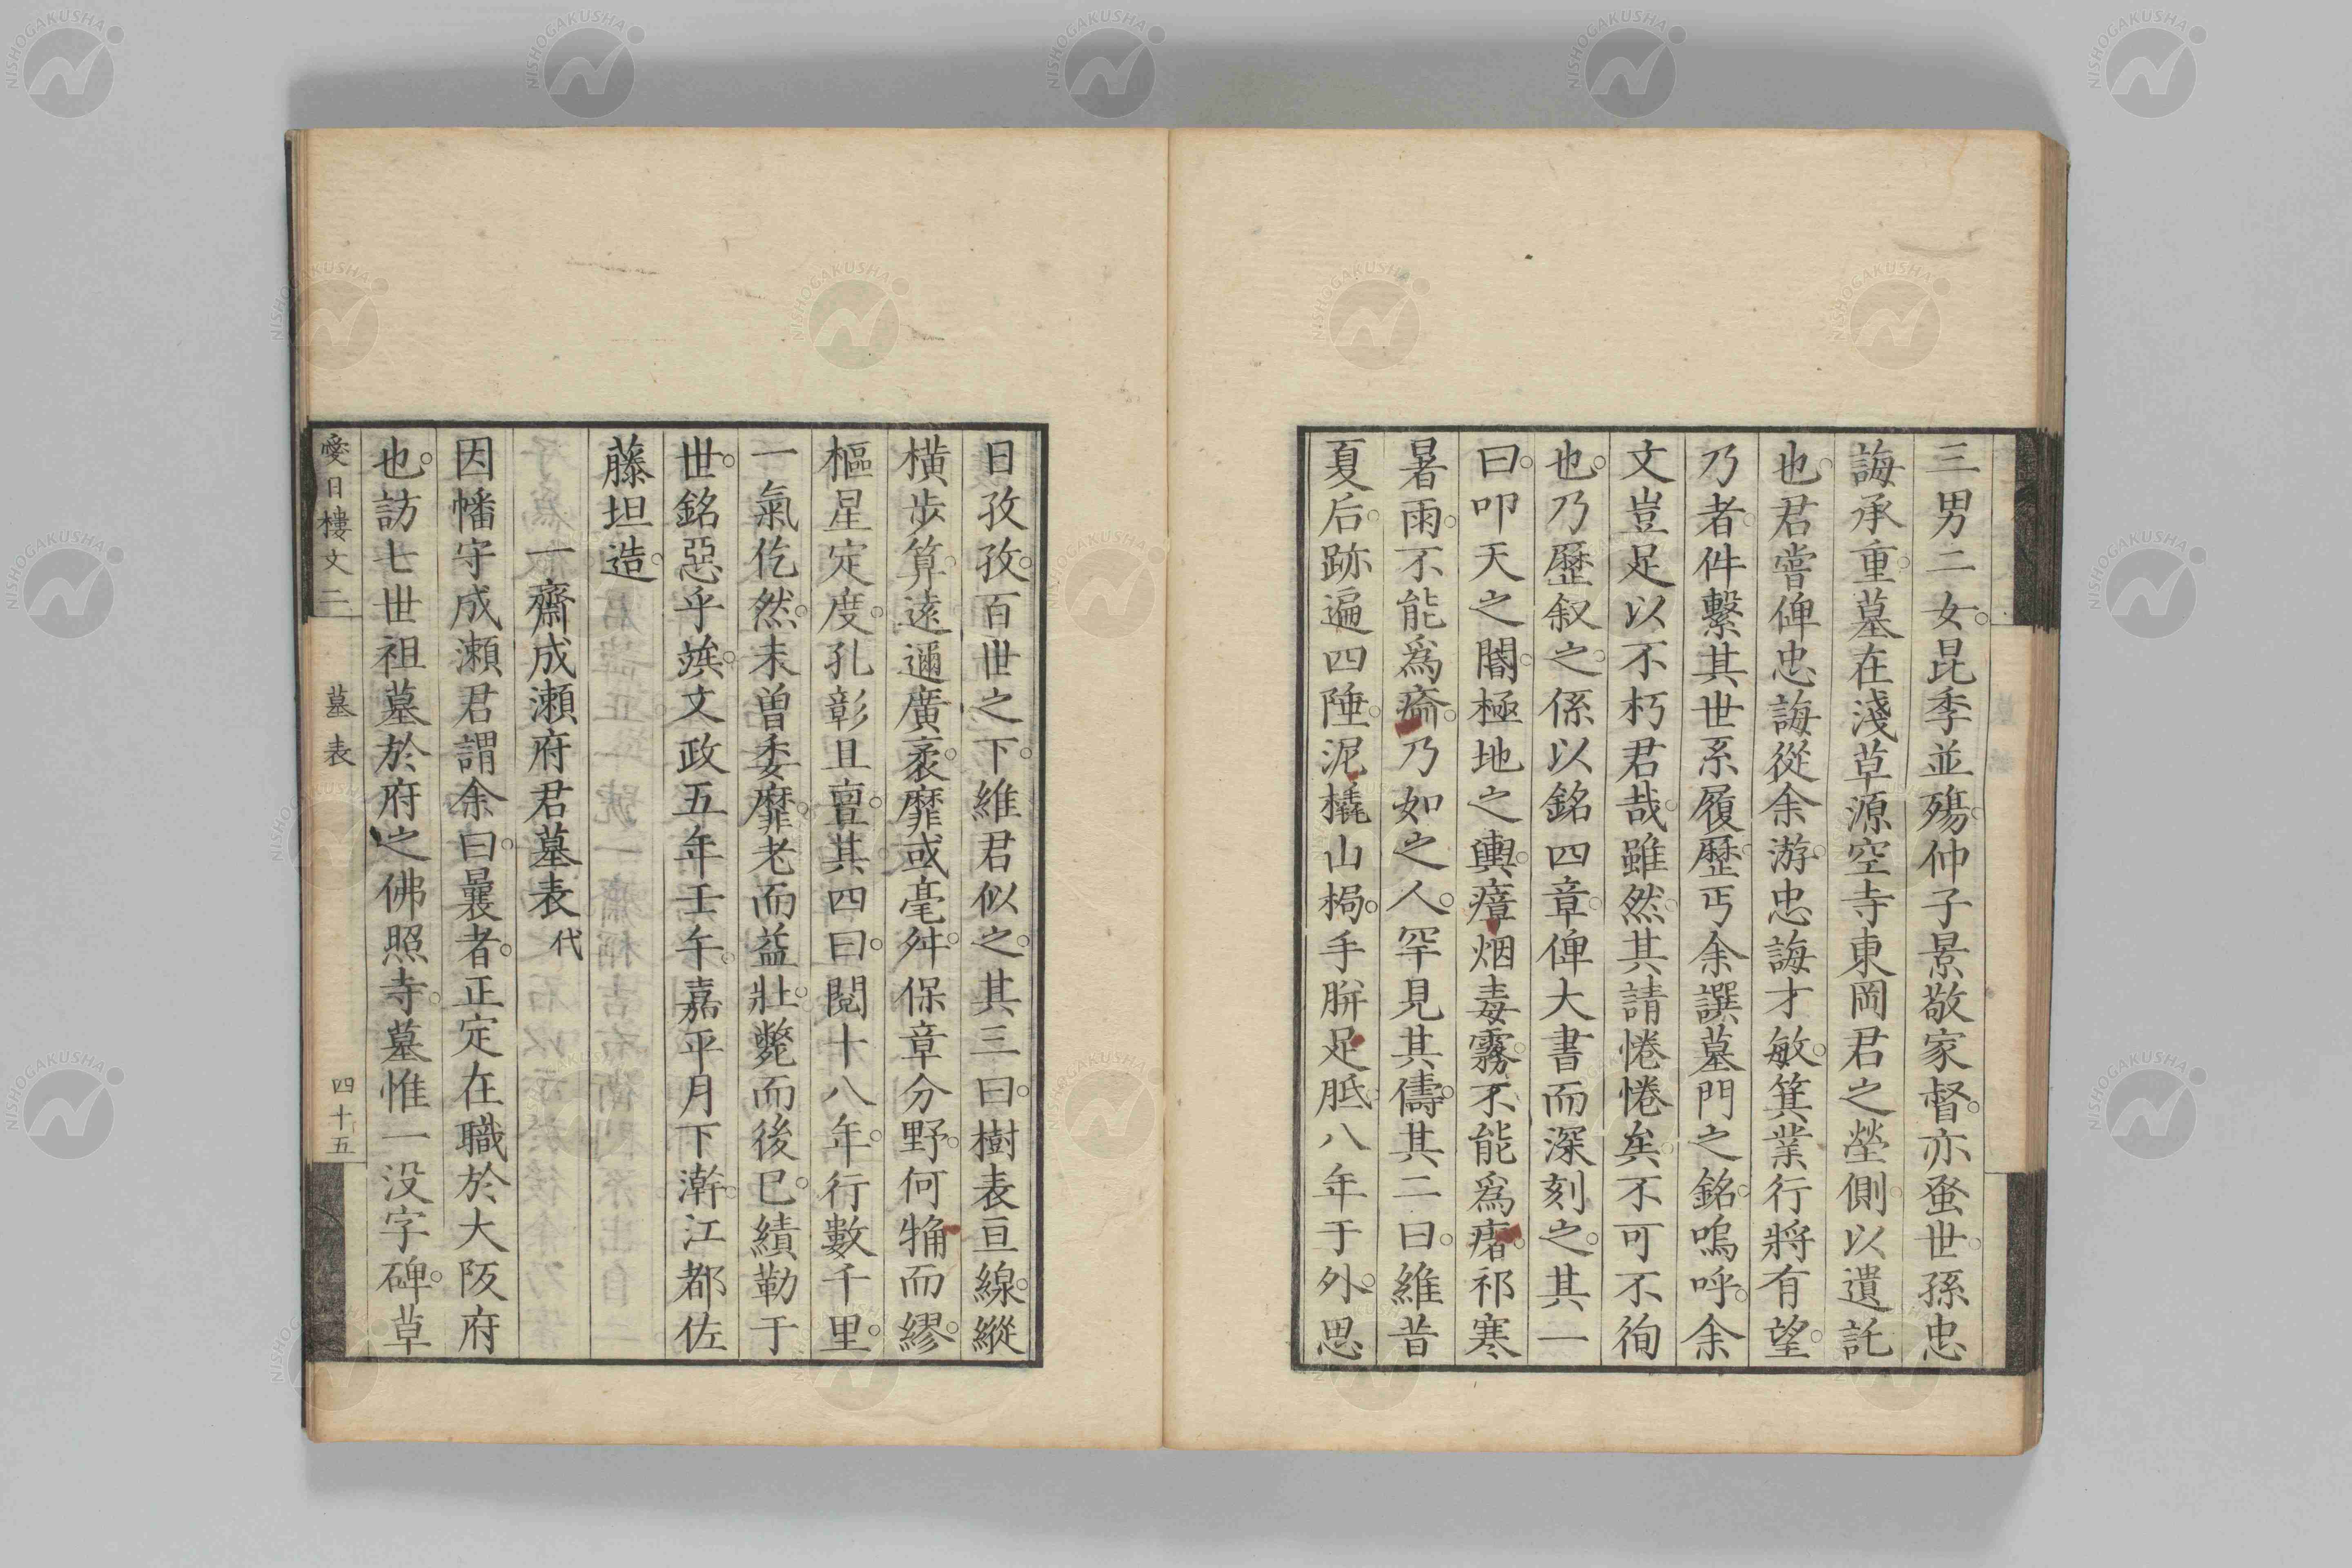 三男二女。昆季並殤。仲子景敬家督。亦蚤世。孫忠
誨承重。墓在淺草源空寺東岡君之塋側。以遺託
也。君嘗俾忠誨從余游。忠誨才敏。箕業行將有望。
乃者。件繫其世系履歷。丐余譔墓門之銘。嗚呼。余
文豈足以不朽君哉。雖然。其請惓惓矣。不可不徇
也。乃歷叙之。係以銘四章。俾大書而深刻之。其一
曰。叩天之闇。極地之輿。瘴烟毒霧。不能爲瘏。祁寒
暑雨。不能爲瘉。乃如之人。罕見其儔。其二曰。維昔
夏后。跡遍四陲。泥橇山梮。手胼足胝。八年于外。思
日孜孜。百世之下。維君似之。其三曰。樹表亘線。縱
橫步算。遠邇廣袤。靡或毫舛。保章分野。何觕而繆。
樞星定度。孔彰且亶。其四曰。閱十八年。行數千里。
一氣仡然。未曾委靡。老而益壯。斃而後已。績勒于
世。銘惡乎竢。文政五年壬午。嘉平月下澣。江都佐
藤坦造。
一齋成瀬府君墓表 代
因幡守成瀬君謂余曰。曩者。正定在職於大阪府
也。訪七世祖墓於府之佛照寺。墓惟一没字碑。草
愛日樓文二
墓表
四十五
NISHOGAKUSHA